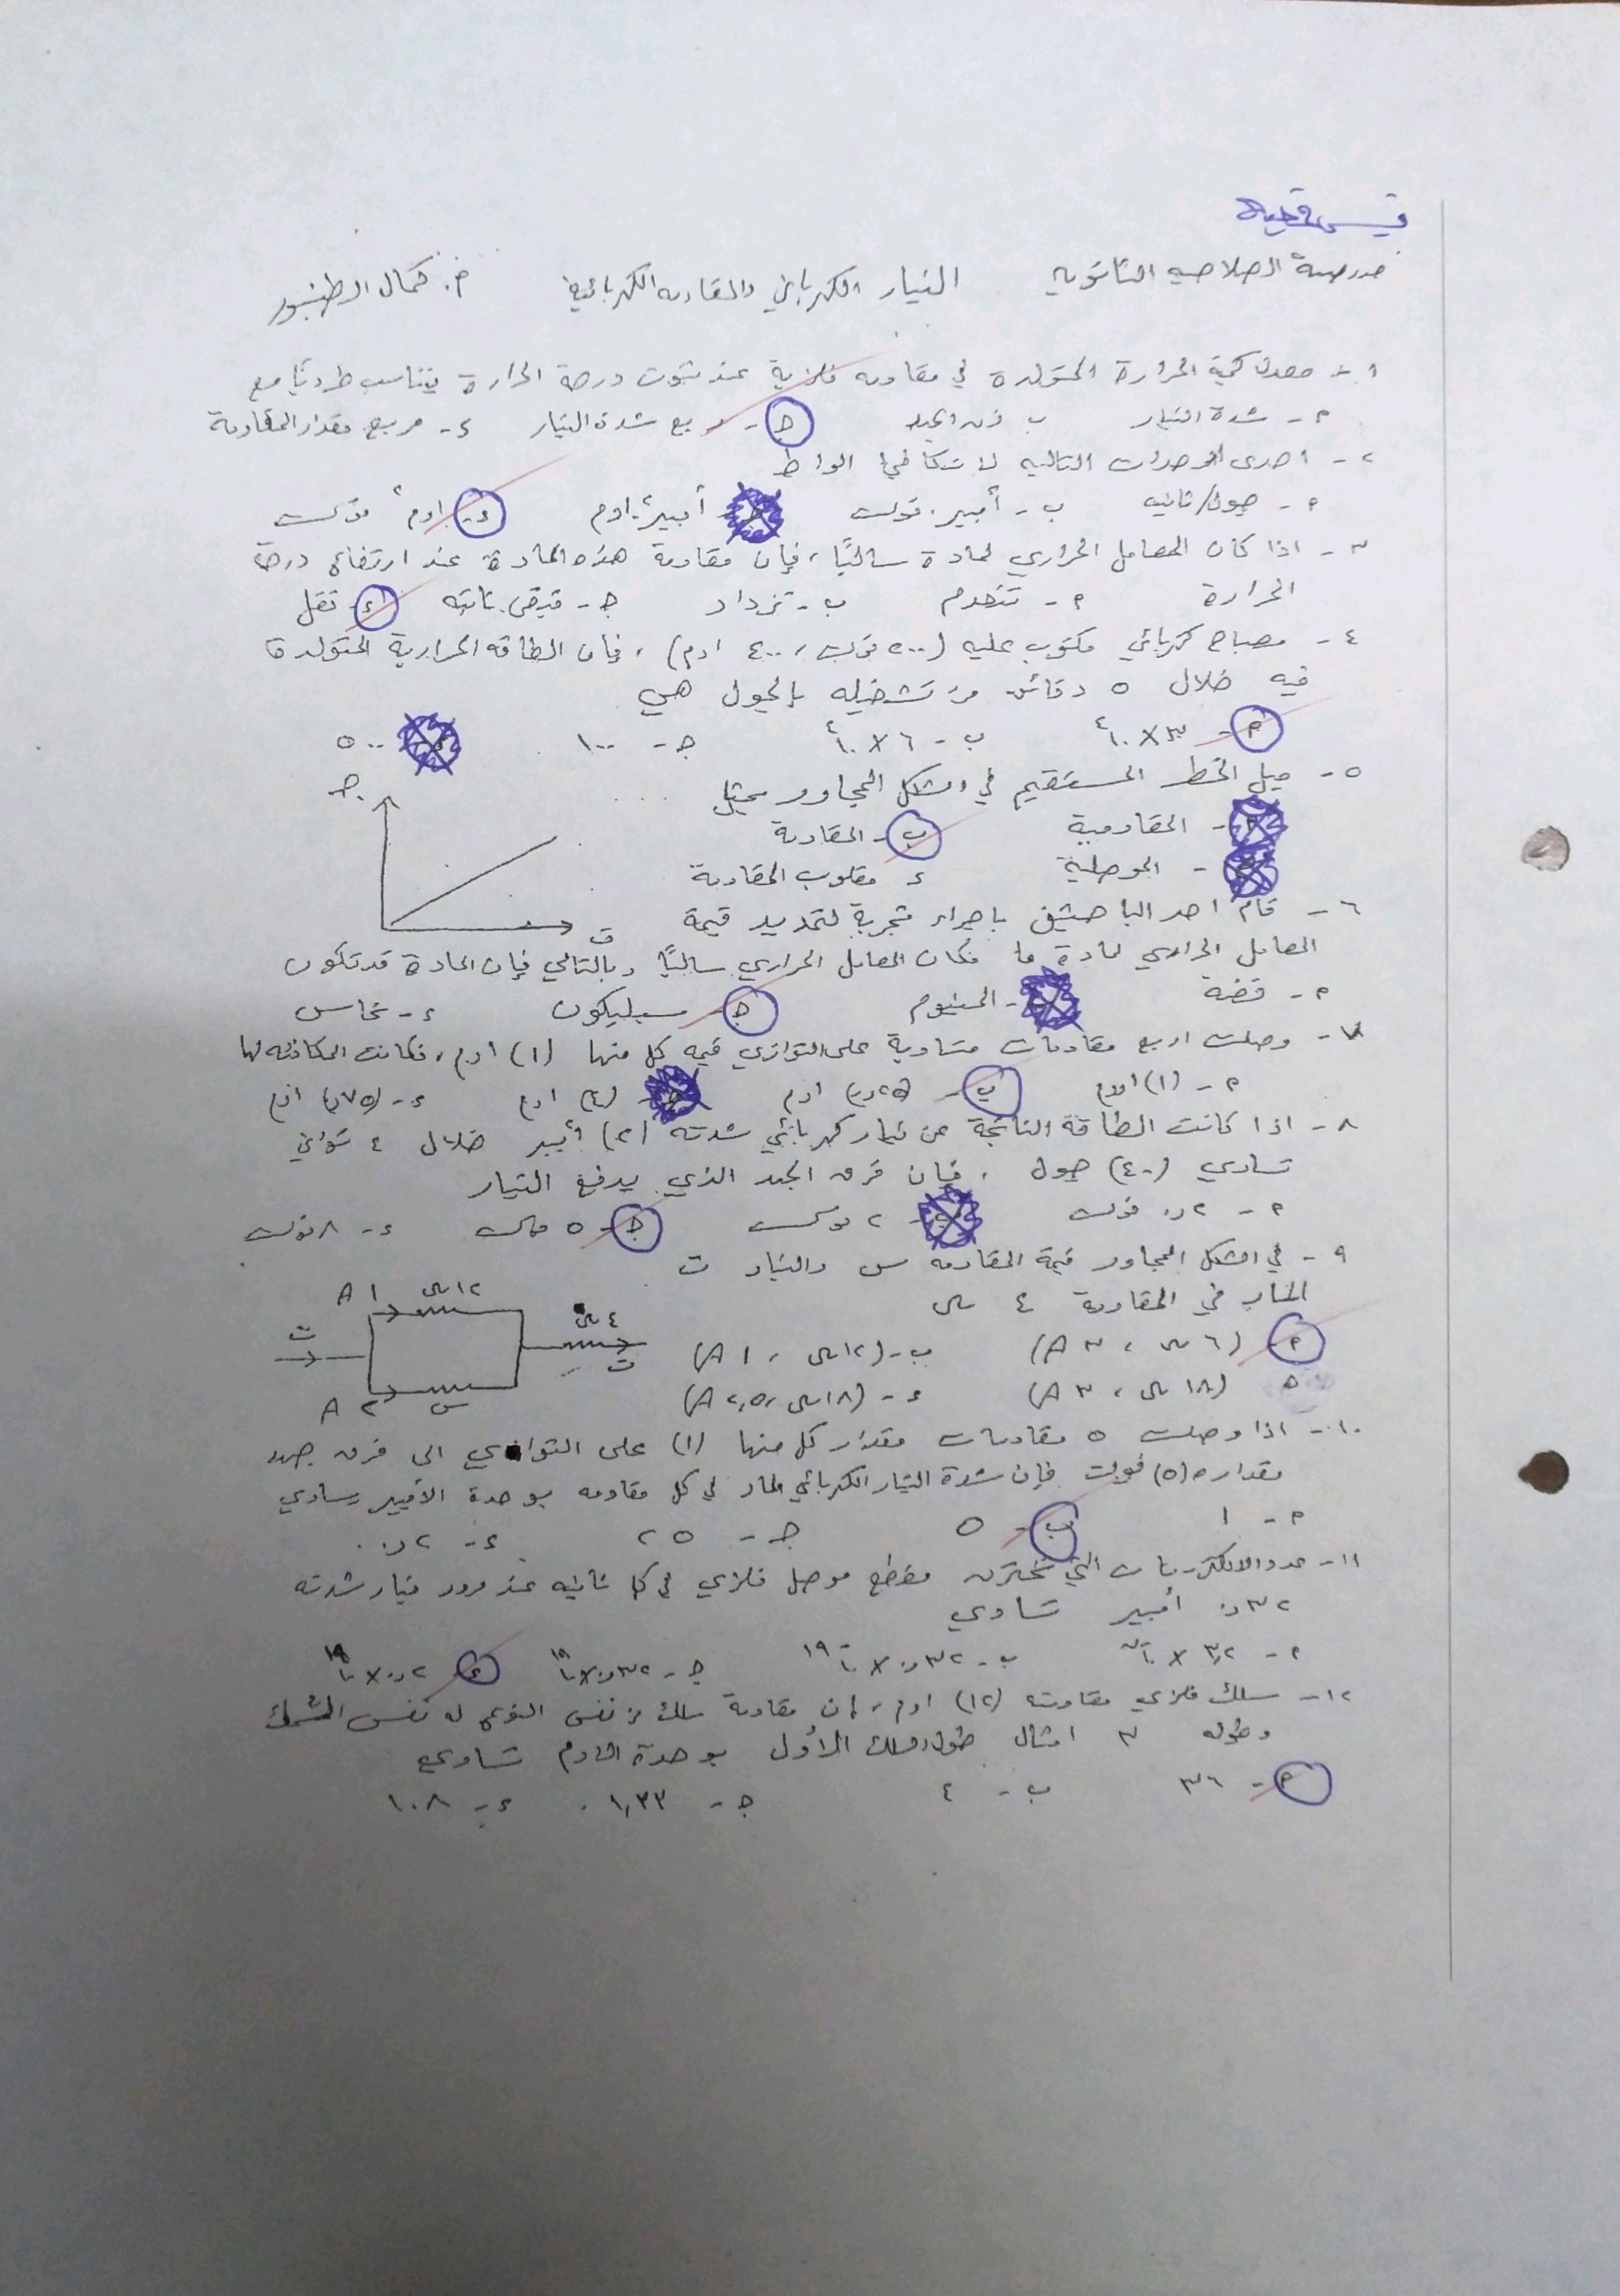 مدرسة الصلاحيه الثانويه التيار الكهربائي والمقاومه الكهربائية م. كمال الطنبور
١- معدل كمية الحرارة المتولدة في مقاومه فلزية عند ثبوت درجة الحرارة يتناسب طرديًا مع
م- شدة التيار ب فرق الجهد ج- مربع شدة التيار د- مربع مقدار المقاومة
٢- احدى الوحدات التاليه لا تكافئ الواط
م- جول/ثانيه ب- أمبير.فولت ج- أمبير٢.اوم د- اوم٢ فولت
٣- اذا كان المعامل الحراري لمادة سالبًا، فإن مقاومة هذه المادة عند ارتفاع درجة
الحرارة م- تنعدم ب- تزداد ج- تبقى ثابته د- تقل
٤- مصباح كهربائي مكتوب عليه (٢٠٠ فولت، ٤٠٠ اوم)، فإن الطاقه الحرارية المتولدة
فيه خلال ٥ دقائق من تشغيله بالجول هي
م- ٣×١٠٤ ب- ٦×١٠٤ ج- ١٠٠ د- ٥٠٠
٥- ميل الخط المستقيم في الشكل المجاور يمثل
م- المقاومية ب- المقاومة
ج- الموصلية د مقلوب المقاومة
جـ
ت
٦- قام احد الباحثين باجراء تجربة لتحديد قيمة
المعامل الحراري لمادة ما فكان المعامل الحراري سالبًا وبالتالي فإن المادة قد تكون
م- فضة ب- المنيوم ج- سيليكون د- نحاس
٧- وصلت اربع مقاومات متساوية على التوازي قيمه كل منها (١) اوم، فكانت المكافئه لها
م- (١) اوم ب- (٠٫٢٥) اوم ج- (٤) اوم د- (٠٫٧٥) اوم
٨- اذا كانت الطاقة الناتجة عن تيار كهربائي شدته (٢) أمبير خلال ٤ ثواني
تساوي (٤٠) جول، فإن فرق الجهد الذي يدفع التيار
م- ٠٫٢ فولت ب- ٢ فولت ج- ٥ فولت د- ٨ فولت
٩- في الشكل المجاور قيمة المقاومه س والتيار ت
المار في المقاومة ٤ Ω
م- (٦ Ω ، ٣ A) ب- (١٢ Ω ، ١ A)
ج (١٨ Ω ، ٣ A) د- (١٨ Ω ، ٢٫٥ A)
١ A ١٢ Ω ٤ Ω
ت ت
٢ A س
١٠- اذا وصلت ٥ مقاومات مقدار كل منها (١) على التوازي الى فرق جهد
مقداره (٥) فولت فإن شدة التيار الكهربائي المار في كل مقاومه بوحدة الأمبير يساوي
م- ١ ب- ٥ ج- ٢٥ د- ٠٫٢
١١- عدد الالكترونات التي تخترق مقطع موصل فلزي في كل ثانيه عند مرور تيار شدته
٠٫٣٢ أمبير تساوي
م- ٣٫٢ × ب- ٠٫٣٢ × ١٠-١٩ ج- ٠٫٣٢ × ١٠١٩ د- ٠٫٢ × ١٠١٩
١٢- سلك فلزي مقاومته (١٢) اوم، إن مقاومة سلك من نفس النوع له نفس السمك
وطوله ٣ امثال طول السلك الأول بوحدة الاوم تساوي
م- ٣٦ ب- ٤ ج- ١٫٣٣ د- ١٠٨